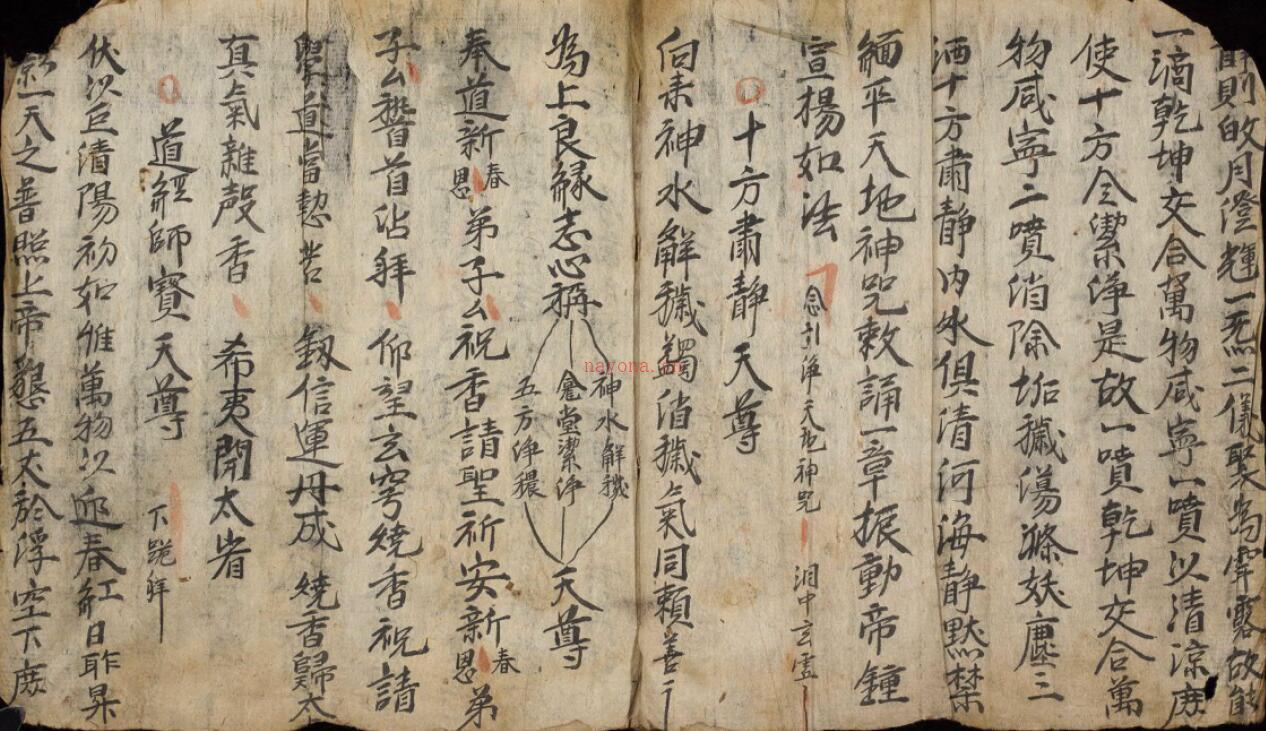 則皎月澄輝一炁二儀聚為霏露故能
一滴乾坤交合萬物咸寧一噴以清涼庶
使十方令潔淨是故一噴乾坤交合萬
物咸寧二噴消除垢穢蕩滌妖塵三
洒十方肅靜內外俱清河海靜默禁
緬平天地神咒敕誦一章振動帝鍾
宣揚如法 念引淨天地神咒 洞中玄虛
十方肅靜天尊
向來神水解穢蠲消穢氣同賴善
為上良緣志心稱 神水解穢 龕堂潔淨 五方淨穢 天尊
奉道新春恩弟子厶祝香請聖祈安新春恩弟
子厶稽首沾拜 仰望玄穹燒香祝請
學道當懃苦 釼信運丹成 燒香歸太
真氣雜殸香 希夷開太省
道經師寶天尊 下跪拜
伏以巨清陽初如惟萬物以迎春紅日昨昇
一天之普照上帝懇五太於浮空下庶
nayona.cn